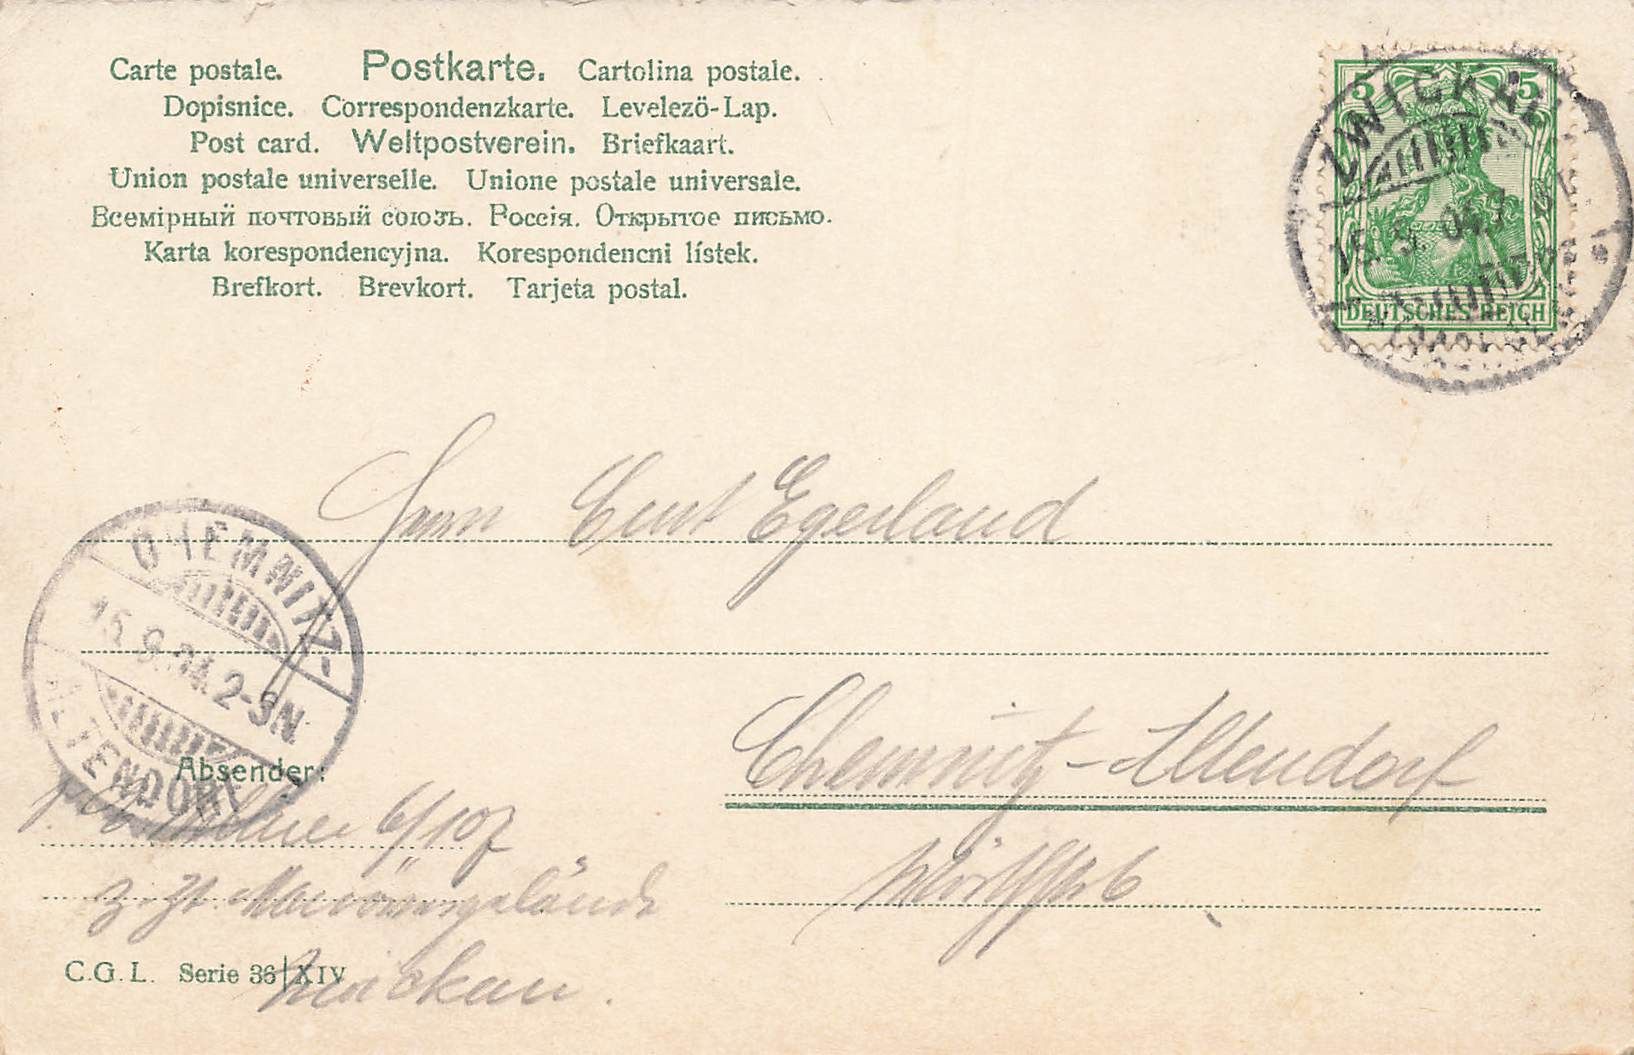 Carte postale. Postkarte. Cartolina postale.
Dopisnice. Correspondenzkarte. Levelező-Lap.
Post card. Weltpostverein. Briefkaart.
Union postale universelle. Unione postale universale.
Всемірный почтовый союзъ. Россія. Открытое письмо.
Karta korespondencyjna. Korespondencni lístek.
Brefkort. Brevkort. Tarjeta postal.
5 5
DEUTSCHES REICH
ZWICKAU
15. 9. 04.
Herrn Curt Egerland
CHEMNITZ-
15. 9. 04. 2-3N.
ALTENDORF
Chemnitz-Altendorf
Absender:
6/107
z. Zt. Manövergelände
Zwickau.
C.G.L. Serie 36/XIV